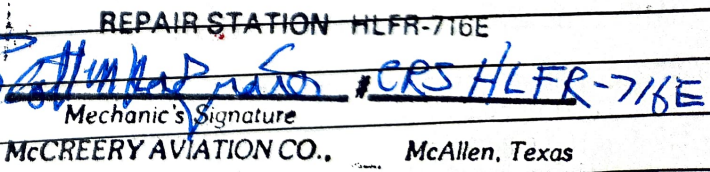 REPAIR STATION HLFR-716E
# CRS HLFR-716E
Mechanic's Signature
McCREERY AVIATION CO., McAllen, Texas